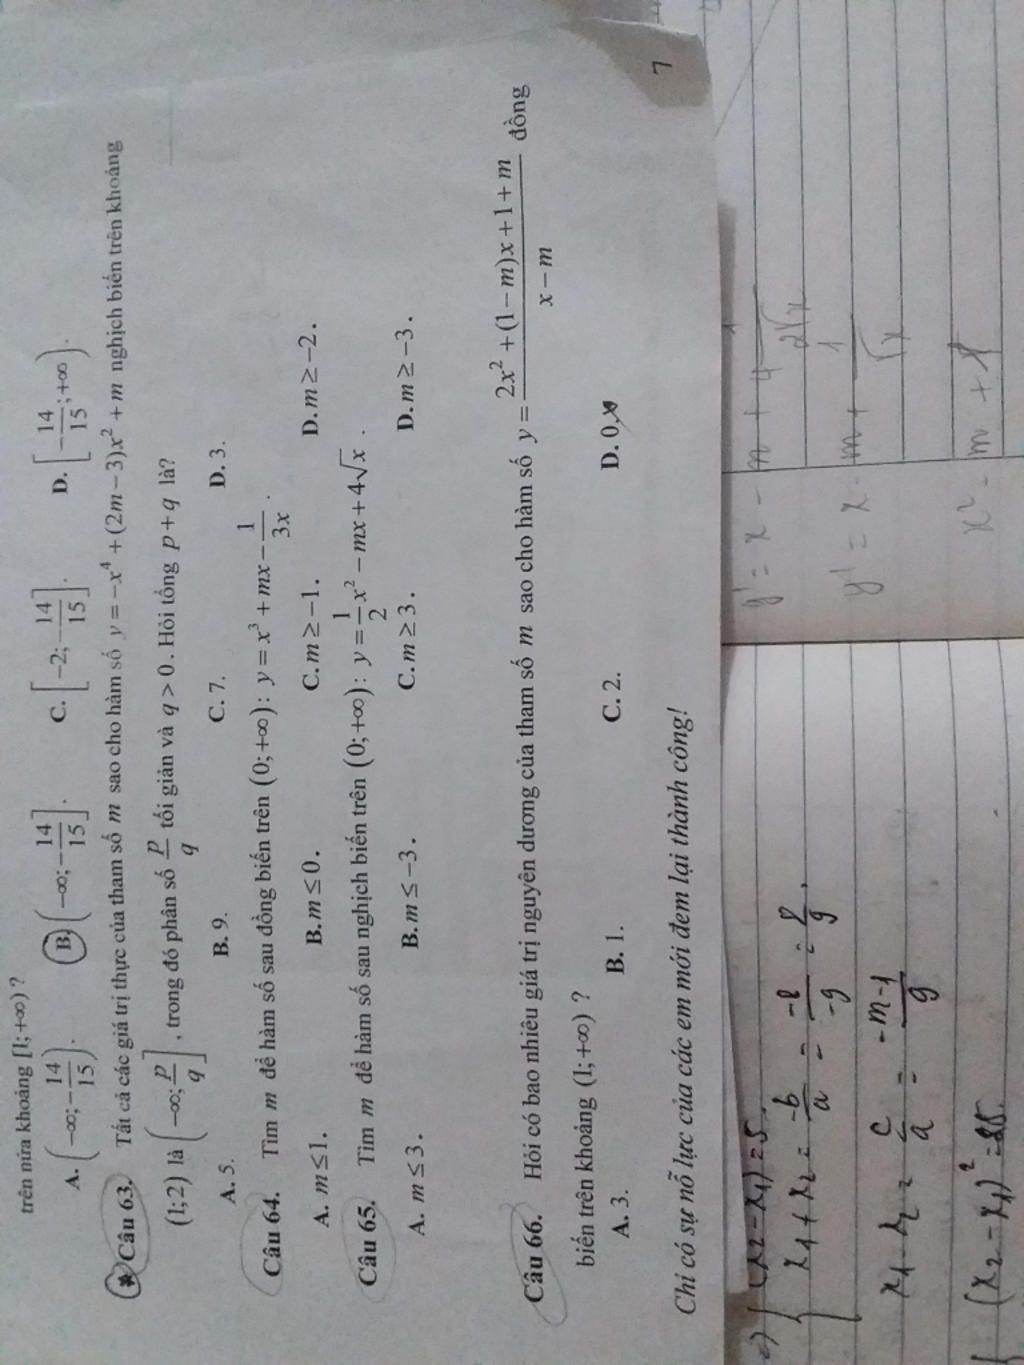 trên nửa khoảng [1;+∞) ?
A. (−∞;−14/15). B. (−∞;−14/15]. C. [−2;−14/15]. D. [−14/15;+∞).
Câu 63. Tất cả các giá trị thực của tham số m sao cho hàm số y = −x⁴ + (2m − 3)x² + m nghịch biến trên khoảng
(1;2) là (−∞; p/q], trong đó phân số p/q tối giản và q > 0. Hỏi tổng p + q là?
A. 5. B. 9. C. 7. D. 3.
Câu 64. Tìm m để hàm số sau đồng biến trên (0;+∞): y = x³ + mx − 1/3x.
A. m ≤ 1. B. m ≤ 0. C. m ≥ −1. D. m ≥ −2.
Câu 65. Tìm m để hàm số sau nghịch biến trên (0;+∞): y = 1/2 x² − mx + 4√x.
A. m ≤ 3. B. m ≤ −3. C. m ≥ 3. D. m ≥ −3.
Câu 66. Hỏi có bao nhiêu giá trị nguyên dương của tham số m sao cho hàm số y = (2x² + (1 − m)x + 1 + m)/(x − m) đồng
biến trên khoảng (1;+∞) ?
A. 3. B. 1. C. 2. D. 0.
Chỉ có sự nỗ lực của các em mới đem lại thành công!
7
(x₂ − x₁) = 5.
x₁ + x₂ = −b/a =
x₁ . x₂ = c/a = −m−1/9
(x₂ − x₁)² = 25.
y' = x − m + 4 1/2√x
y' = x − m + 1/√x
x² − m + 1